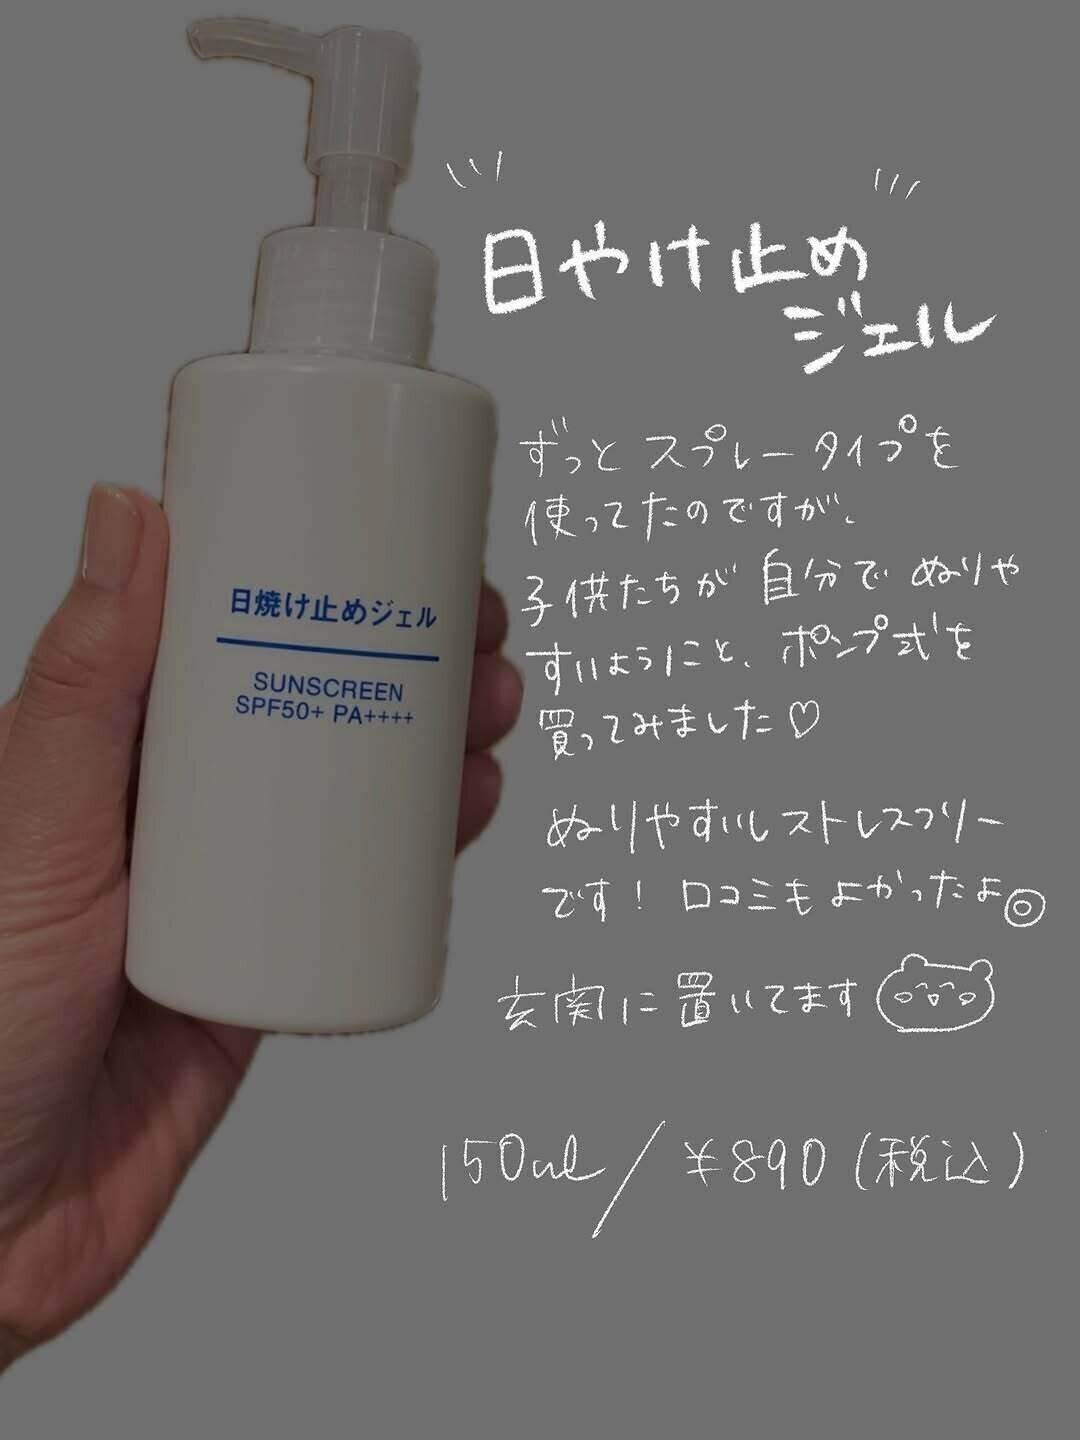 日やけ止め
ジェル
ずっとスプレータイプを
使ってたのですが、
子供たちが自分でぬりや
すいようにと、ポンプ式を
買ってみました♡
ぬりやすいしストレスフリー
です！口コミもよかったよ◎
玄関に置いてます
150ml/¥890(税込)
日焼け止めジェル
SUNSCREEN
SPF50+ PA++++